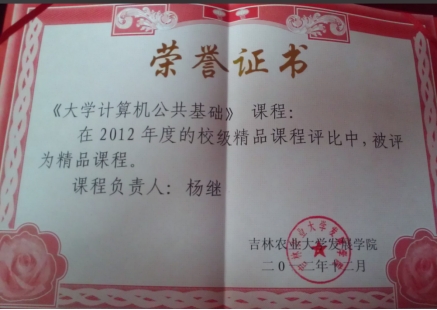 荣誉证书
《大学计算机公共基础》 课程：
在 2012 年度的校级精品课程评比中，被评
为精品课程。
课程负责人：杨继
吉林农业大学发展学院
二〇一二年十二月